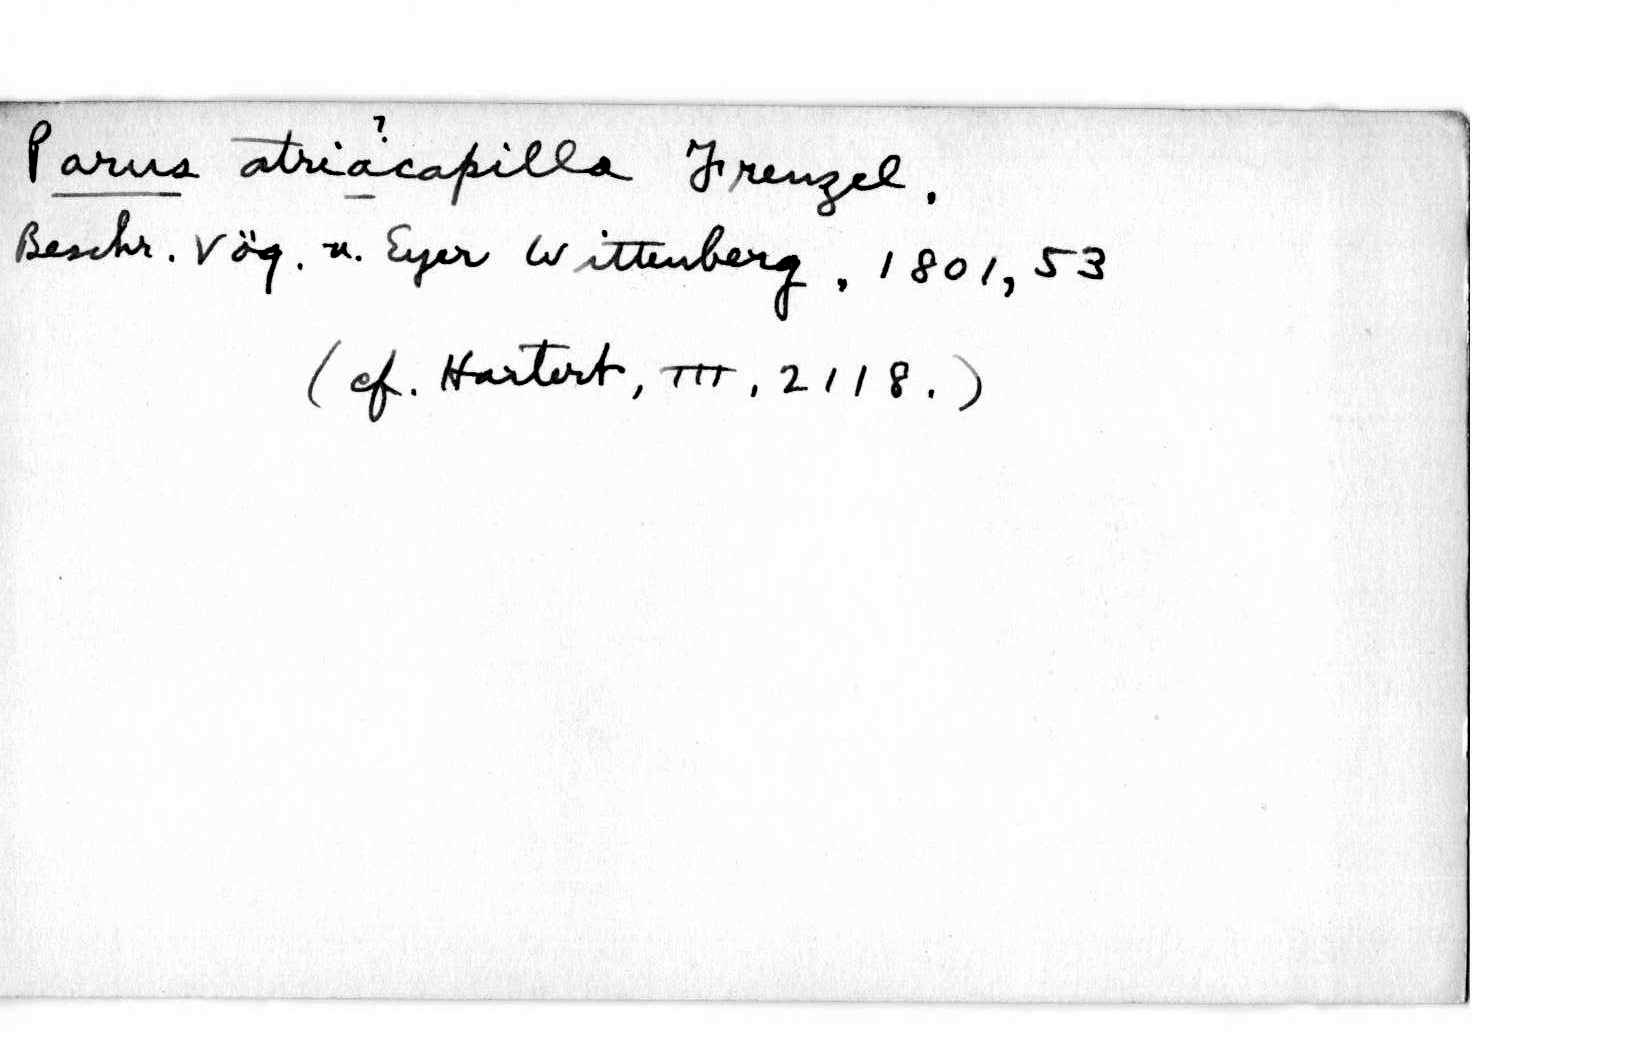 Parus atriacapilla Frenzel.
?
Beschr. Vög. u. Eyer Wittenberg, 1801, 53
(cf. Hartert, III, 2118.)